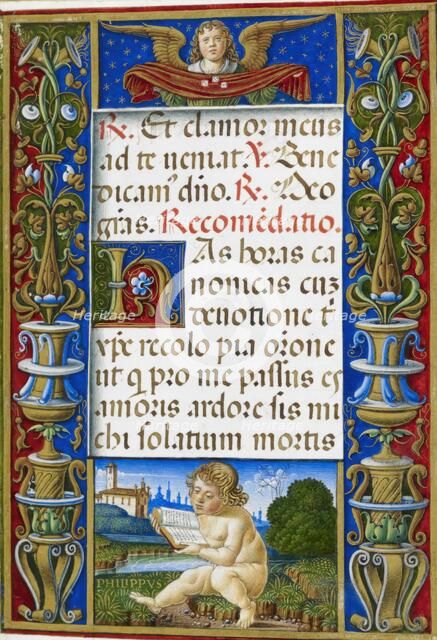 ℟. Et clamor meus
ad te veniat. ℣. Bene
dicamꝰ dño. ℟. Deo
grãs. Recomẽdatio.
Has horas ca
nonicas cuʒ
devotione t̃
xp̃e recolo pia or̃one
ut q̃ pro me passus es
amoris ardore sis mi
chi solatium mortis
PHILIPPVS